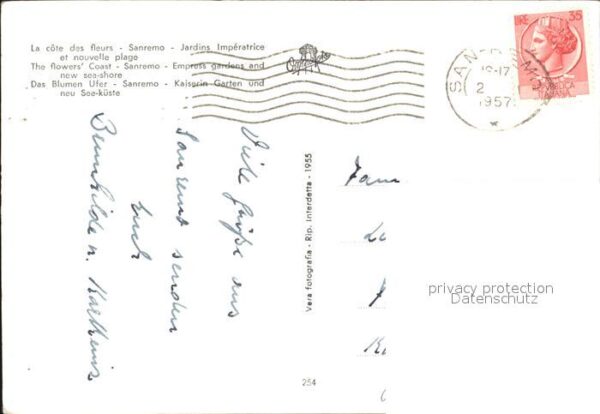 La côte des fleurs - Sanremo - Jardins Impératrice
et nouvelle plage
The flowers' Coast - Sanremo - Empress gardens and
new sea-shore
Das Blumen Ufer - Sanremo - Kaiserin Garten und
neu See-küste
LIRE 35
SAN
18-17
2
1957
REPUBBLICA
ITALIANA
Viele Grüße aus
Sanremo senden
Euch
Brunhilde u. Karlheinz
Vera fotografia - Rip. interdetta - 1955
Fam
privacy protection
Datenschutz
254